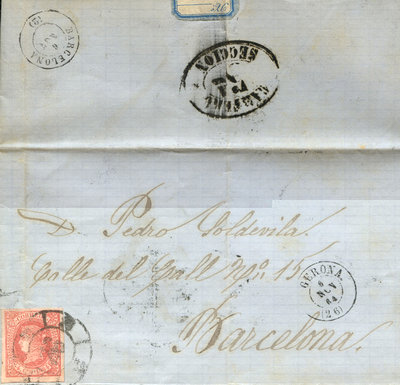 BARCELONA
NOV
(3)
SECCION
D. Pedro Soldevila
Calle del Gall Nº 15
Barcelona.
GERONA
6
NOV
64
(26)